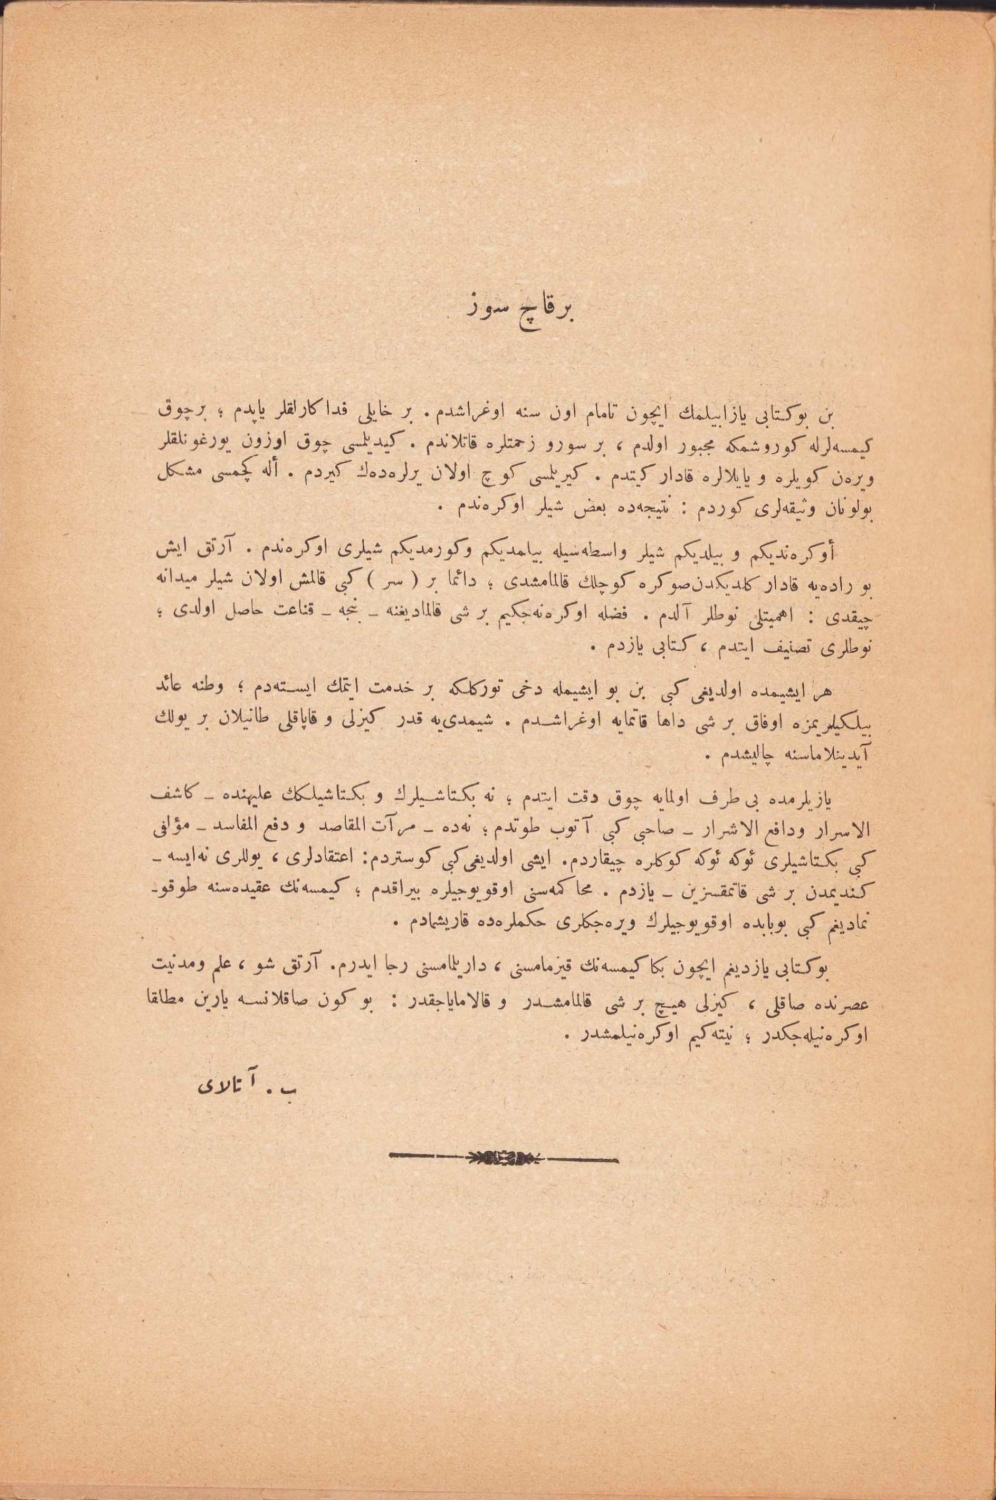 بر قاچ سوز
بن بوكتابی یازابیلمك ایچون تامام اون سنه اوغراشدم . بر خایلی فداكارلقلر یاپدم ؛ برچوق
كیمسه‌لرله كوروشمكه مجبور اولدم ، بر سورو زحمتلره قاتلاندم . كیدیلمسی چوق اوزون یورغونلقلر
ویره‌ن كویلره و یایلالره قادار كیتدم . كیریلمسی كوچ اولان یرلره‌ده‌ك كیردم . أله كچمسی مشكل
بولونان وثیقه‌لری كوردم : نتیجه‌ده بعض شیلر اوكره‌ندم .
أوكره‌ندیكم و بیلدیكم شیلر واسطه‌سیله بیلمدیكم وكورمدیكم شیلری اوكره‌ندم . آرتق ایش
بو راده‌یه قادار كلدیكدن‌صوكره كوچلك قالمامشدی ؛ دائما بر ( سر ) كبی قالمش اولان شیلر میدانه
چیقدی : اهمیتلی نوطلر آلدم . فضله اوكره‌نه‌جكیم بر شی قالمادیغنه ــ بنجه ــ قناعت حاصل اولدی ؛
نوطلری تصنیف ایتدم ، كتابی یازدم .
هر ایشیمده اولدیغی كبی بن بو ایشیمله دخی توركلكه بر خدمت ایتمك ایسته‌دم ؛ وطنه عائد
بیلكیلریمزه اوفاق بر شی داها قاتمایه اوغراشدم . شیمدی‌یه قدر كیزلی و قاپاقلی طانیلان بر یولك
آیدینلاماسنه چالیشدم .
یازیلرمده بی طرف اولمایه چوق دقت ایتدم ؛ نه بكتاشیلرك و بكتاشیلكك علیهنده ــ كاشف
الاسرار ودافع الاشرار ــ صاحبی كبی آتوب طوتدم ؛ نه‌ده ــ مرآت المقاصد و دفع المفاسد ــ مؤلفی
كبی بكتاشیلری ئوكه ئوكه كوكلره چیقاردم. ایشی اولدیغی‌كبی كوستردم: اعتقادلری ، یوللری نه‌ایسه ــ
كندیمدن بر شی قاتمقسزین ــ یازدم . محاكمه‌سنی اوقویوجیلره بیراقدم ؛ كیمسه‌نك عقیده‌سنه طوقو-
نمادیغم كبی بوبابده اوقویوجیلرك ویره‌جكلری حكملره‌ده قاریشمادم .
بوكتابی یازدیغم ایچون بكا كیمسه‌نك قیزمامسنی ، داریلمامسنی رجا ایدرم. آرتق شو ، علم ومدنیت
عصرنده صاقلی ، كیزلی هیچ بر شی قالمامشدر و قالامایاجقدر : بو كون صاقلانسه یارین مطلقا
اوكره‌نیله‌جكدر ؛ نیته‌كیم اوكره‌نیلمشدر .
ب . آتالای